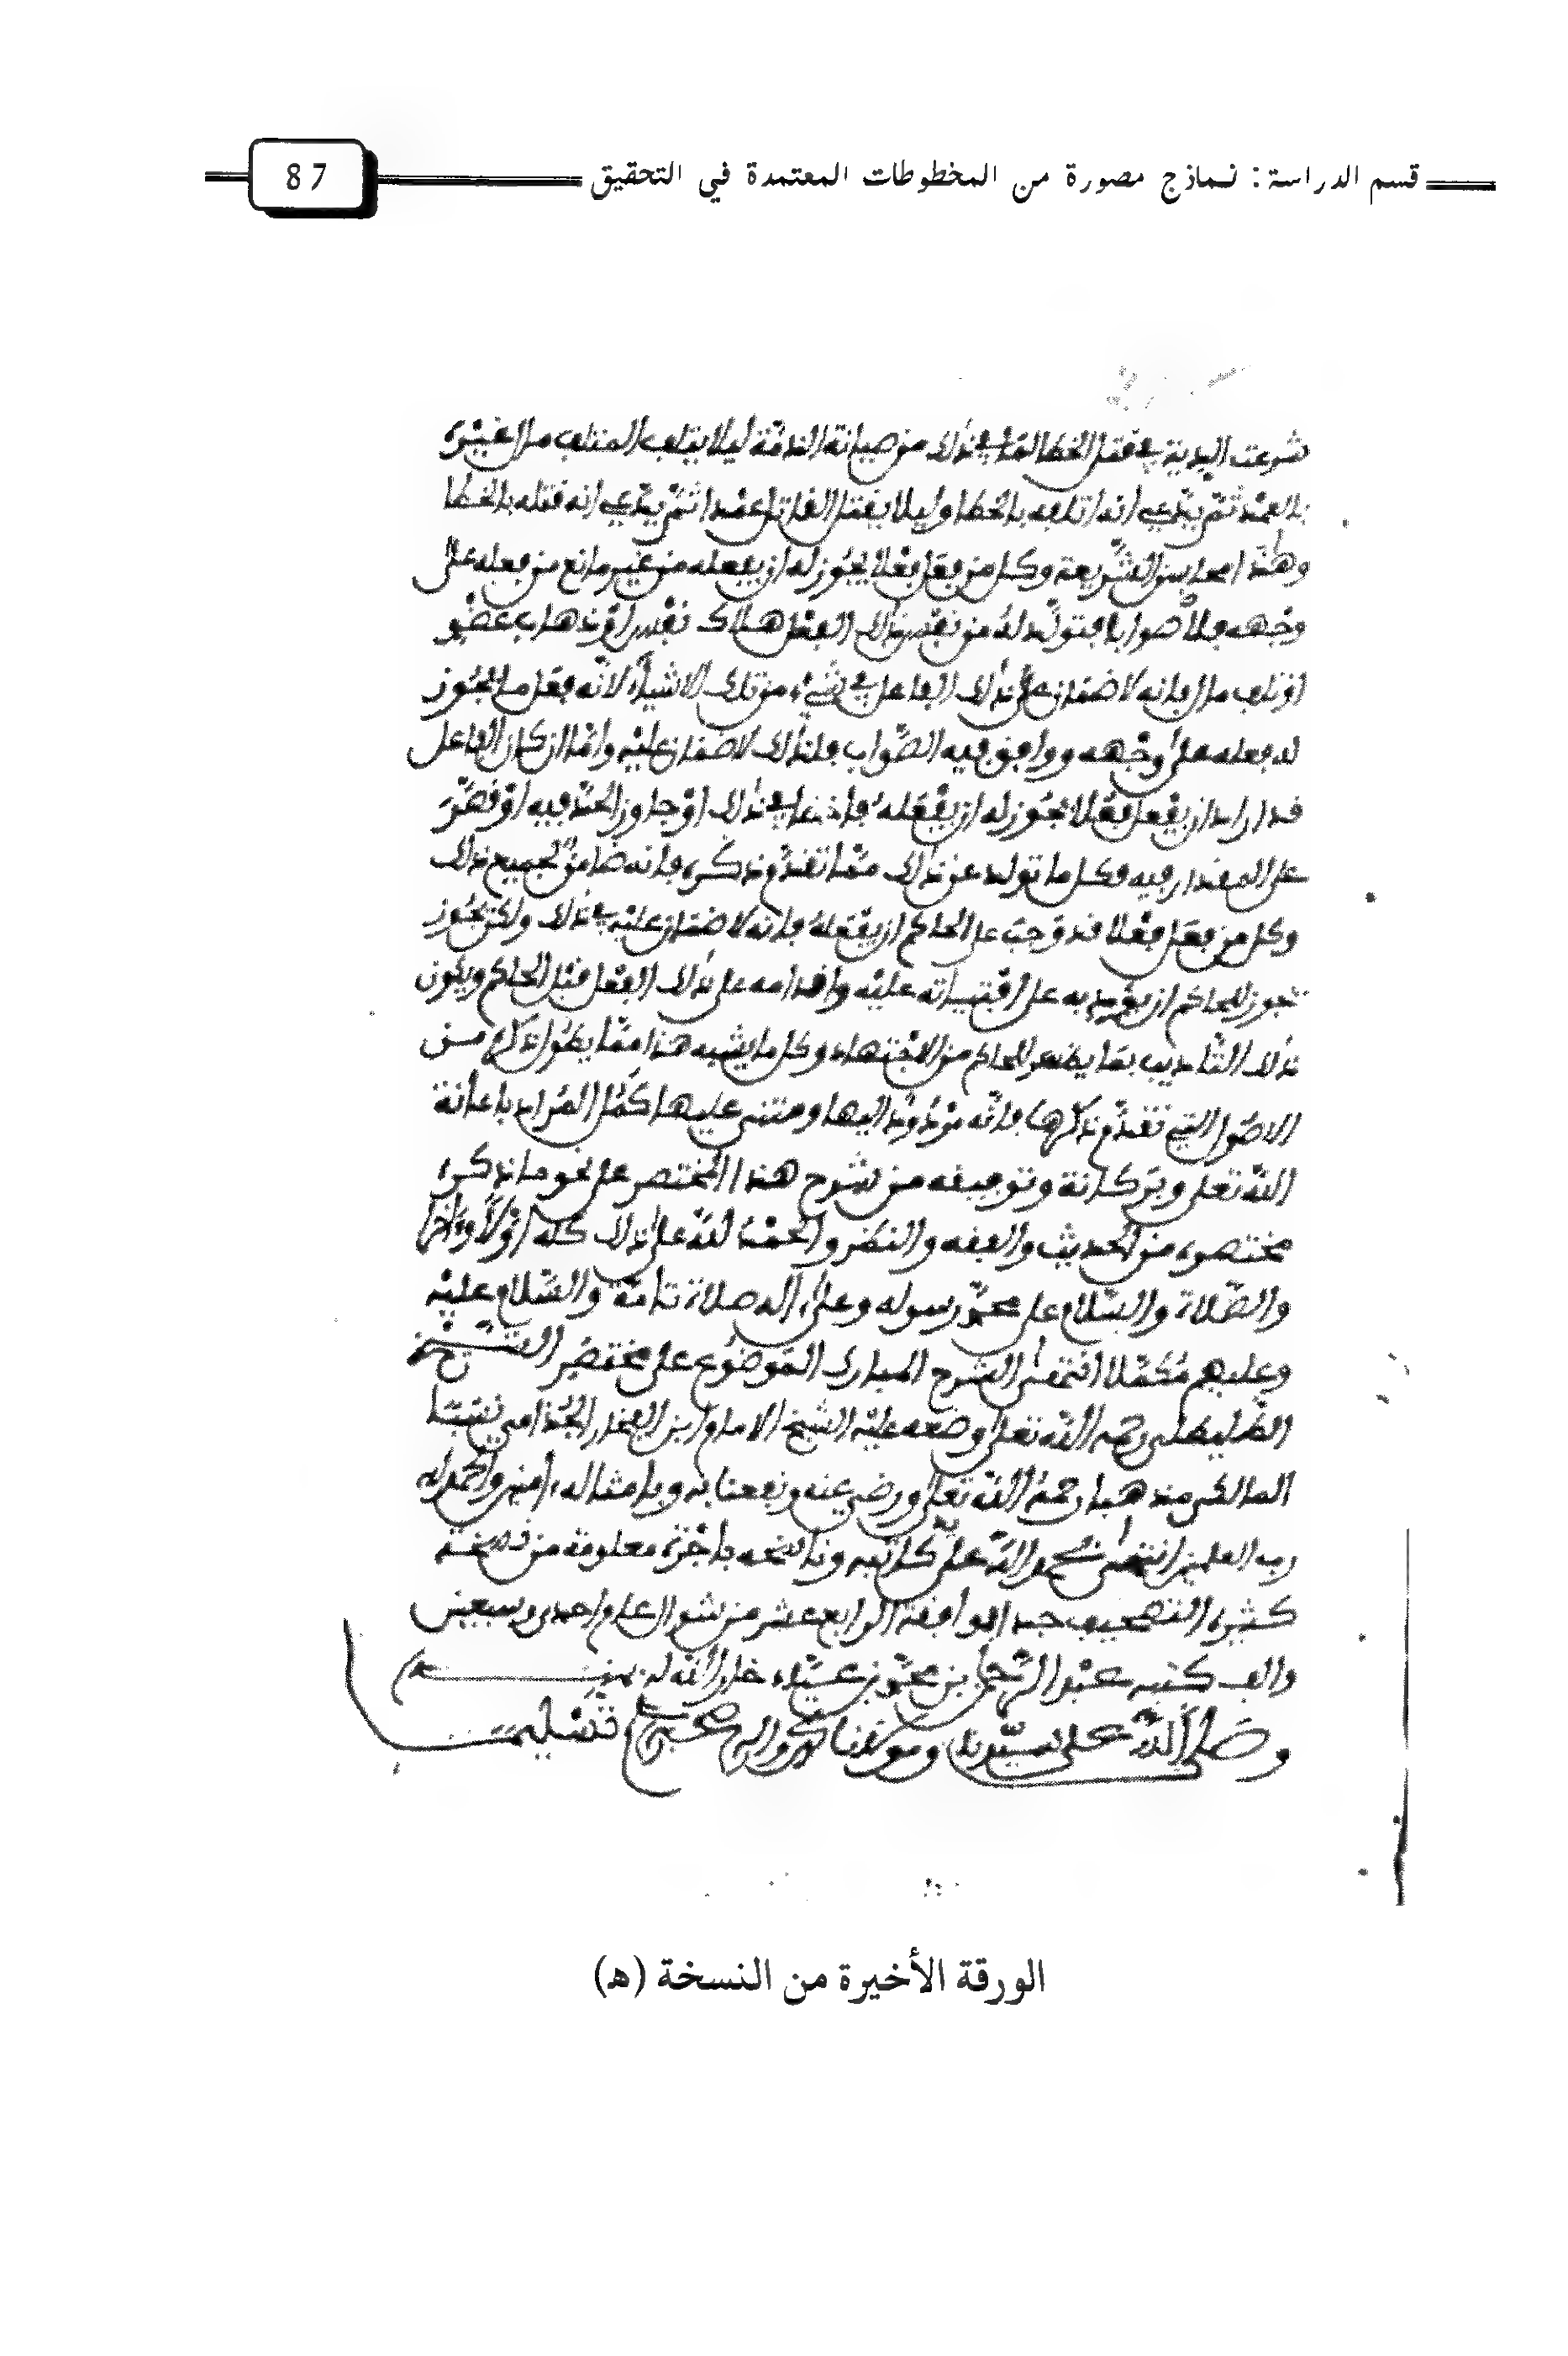 قسم الدراسة: نماذج مصورة من المخطوطات المعتمدة في التحقيق
87
شرعت الدية في قتل الخطا لما في ذلك من صيانة الذمة ليلا يتلف المتلف مال غيره
بالعمد ثم يدعي انه اتلفه بالخطا وليلا يقتل القاتل عمدا ثم يدعي انه قتله بالخطا
وهذا محاسن الشريعة وكل من فعل فعلا يجوز له ان يفعله من غير مانع من فعله على
وجهه فلا صوابا فتولد له من نفس ذلك الفعل هلاك نفس او ذهاب عضو
او تلف مال فانه لا ضمان على ذلك الفاعل في شيء من تلك الاشياء لانه فعل ما يجوز
له فعله على وجهه ووافق فيه الصواب فلذلك لا ضمان عليه واما ان كان الفاعل
قد اراد ان يفعل فعلا يجوز له ان يفعله فاخطا في ذلك او جاوز الحد فيه او قصر
على المقدار فيه فكل ما تولد عن ذلك مما تقدم ذكره فانه ضامن لجميع ذلك
وكل من فعل فعلا قد وجب على الحاكم ان يفعله فانه لا ضمان عليه في ذلك ولكن يجوز
يجوز للحاكم ان يؤدبه على افتياته عليه واقدامه على ذلك الفعل قبل الحاكم ويكون
ذلك التاديب بما يظهر للحاكم من الاجتهاد وكل ما يشبه هذا مما يطول ذكره من
الاصول التي تقدم ذكرها فانه مردود اليها ومبني عليها كمل المراد باعانة
الله تعلى وبركاته وتوفيقه من شرح هذا المختصر على نحو ما ذكره
مختصره من الحديث والفقه والنظر والحمد لله على ذلك كله اولا وءاخرا
والصلاة والسلام على محمد رسوله وعلى ءاله صلاة تامة والسلام عليه
وعليهم مكملا انتهى الشرح المبارك الموضوع على مختصر الشيخ
الطليطلي رحمه الله تعلى وضعه عليه الشيخ الامام ابن الفخار الجذامي نسبا
المالكي مذهبا رحمه الله تعلى ورضي عنه ونفعنا به وبامثاله ءامين والحمد لله
رب العلمين انتهى بحمد الله على كاتبه وناسخه باجرة معلومة من نسخة
كثيرة التصحيف جدا الموافقة الرابع عشر من شوال عام واحد وسبعين
والف كتبه عبد الرحمن بن محمد بن خار الله له بمنه
وصلى الله على سيدنا ومولانا محمد واله وصحبه وسلم تسليما
الورقة الأخيرة من النسخة (ه)